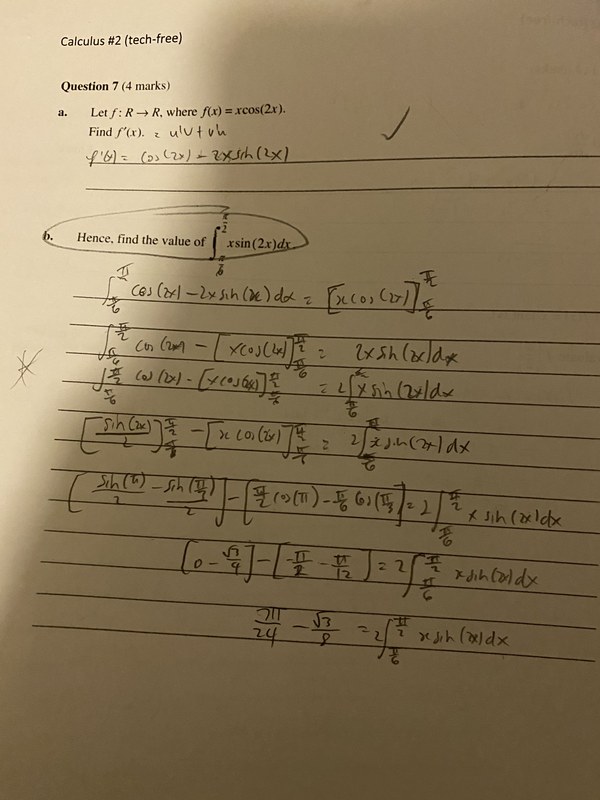 Calculus #2 (tech-free)
Question 7 (4 marks)
a. Let f : R → R, where f(x) = xcos(2x).
Find f′(x). = u'v + v'u
f'(x) = cos(2x) - 2xsin(2x)
b. Hence, find the value of ∫_{π/6}^{π/2} xsin(2x)dx
∫_{π/6}^{π/2} cos(2x) - 2xsin(2x) dx = [xcos(2x)]_{π/6}^{π/2}
∫_{π/6}^{π/2} cos(2x) - [xcos(2x)]_{π/6}^{π/2} = 2xsin(2x)dx
∫_{π/6}^{π/2} cos(2x) - [xcos(2x)]_{π/6}^{π/2} = 2∫_{π/6} xsin(2x)dx
[sin(2x)/2]_{π/6}^{π/2} - [xcos(2x)]_{π/6}^{π/2} = 2∫_{π/6}^{π/2} xsin(2x)dx
[sin(π)/2 - sin(π/3)/2] - [π/2 cos(π) - π/6 cos(π/3)] = 2∫_{π/6}^{π/2} xsin(2x)dx
[0 - √3/4] - [-π/2 - π/12] = 2∫_{π/6}^{π/2} xsin(2x)dx
7π/24 - √3/8 = 2∫_{π/6}^{π/2} xsin(2x)dx